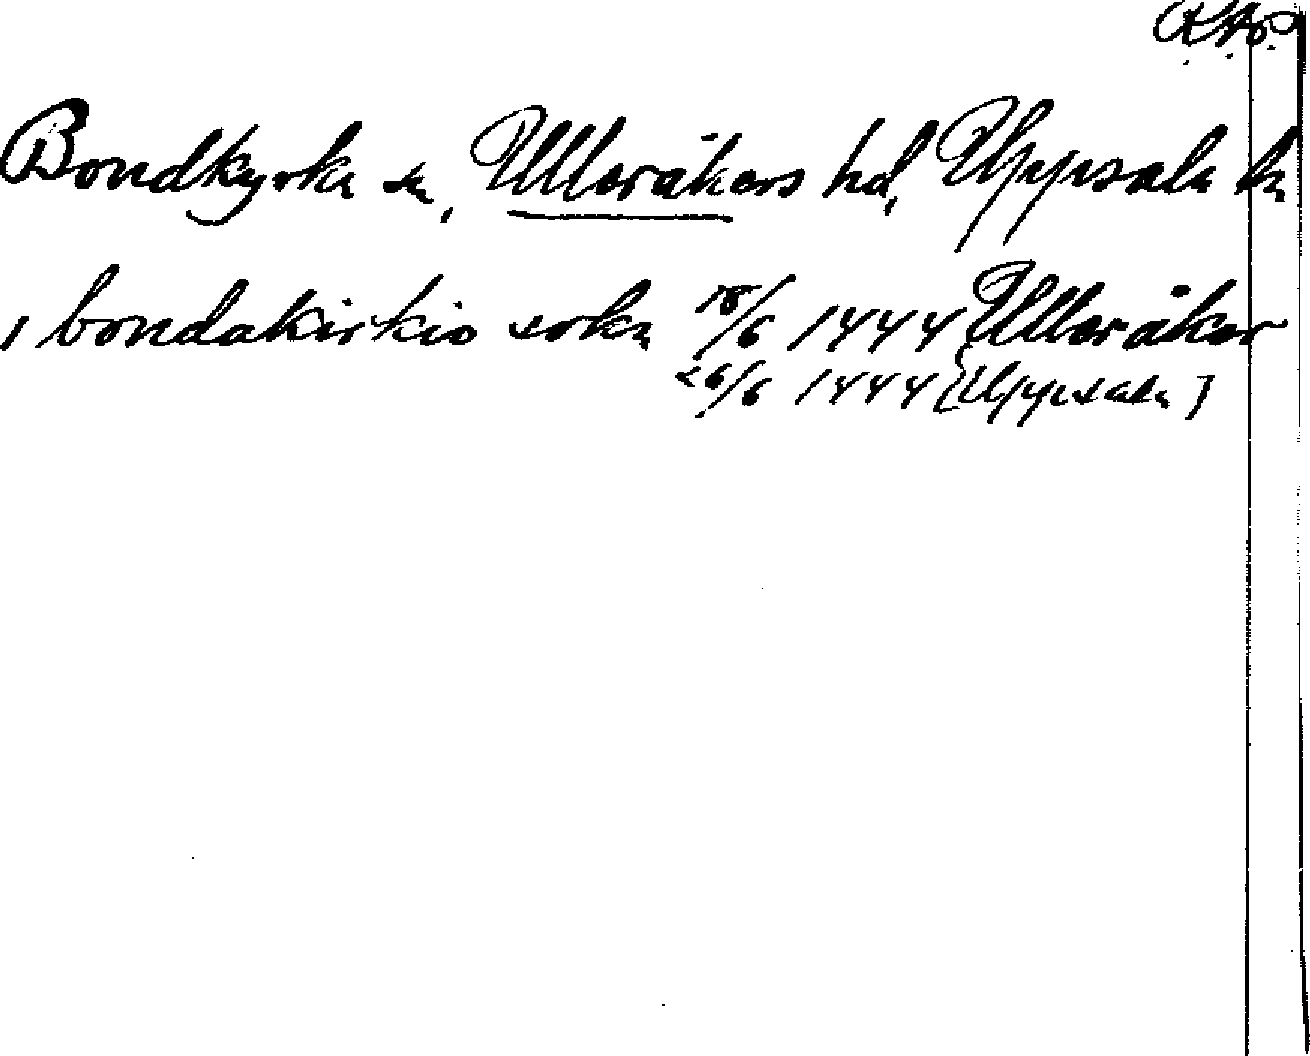 R.A.o.
Bondkyrka sn, Ulleråkers hd, Uppsala ln
, bondakirkio sokn 18/6 1444 Ulleråker
26/6 1444 [Uppsala]